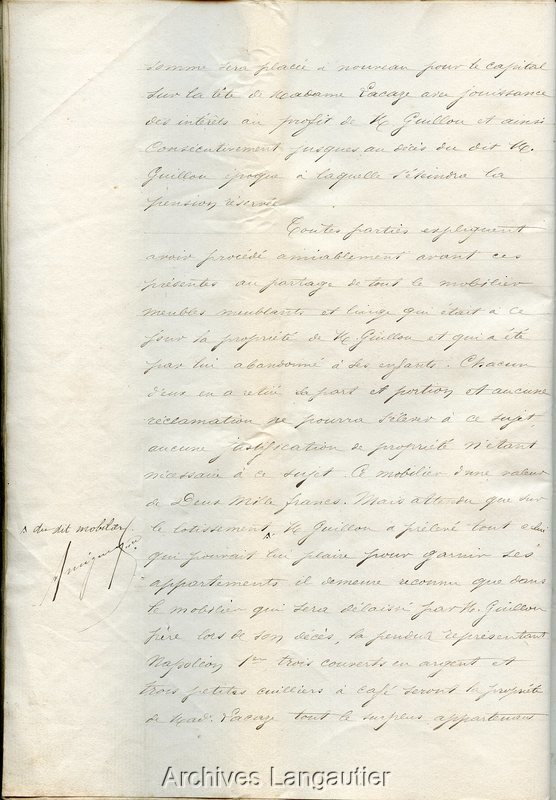 somme sera placée à nouveau pour le capital
sur la tête de Madame Lacaze avec jouissance
des intérêts au profit de M Guillou et ainsi
Consécutivement jusques au décès du dit M.
Guillou époque à laquelle s'éteindra la
pension réservée
Toutes parties expliquent
avoir procédé amiablement avant ces
présentes au partage de tout le mobilier
meubles meublants et linge qui était à ce
jour la propriété de M Guillou et qui a été
par lui abandonné à ses enfants. Chacun
d'eux en a retiré sa part et portion et aucune
réclamation ne pourra s'élever à ce sujet
aucune justification de propriété n'étant
nécessaire à ce sujet. Ce mobilier d'une valeur
de Deux mille francs. Mais attendu que sur
le lotissement M Guillou a prélevé tout celui
qui pouvait lui plaire pour garnir ses
appartements il demeure reconnu que dans
le mobilier qui sera délaissé par M. Guillou
père lors de son décès, la pendule représentant
Napoléon 1er trois couverts en argent et
trois petites cuilliers à café seront la propriété
de Mad. Lacaze tout le surplus appartenant
du dit mobilier
Archives Langautier